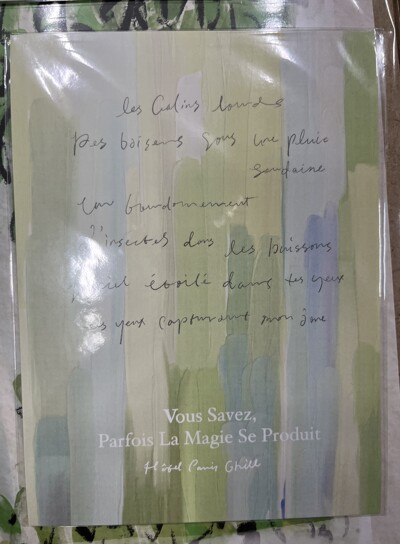 les Calins lourds
Des baisers sous une pluie
soudaine
Un bourdonnement
d'insectes dans les buissons
ciel étoilé dans tes yeux
yeux capturent mon âme
Vous Savez,
Parfois La Magie Se Produit
Paris